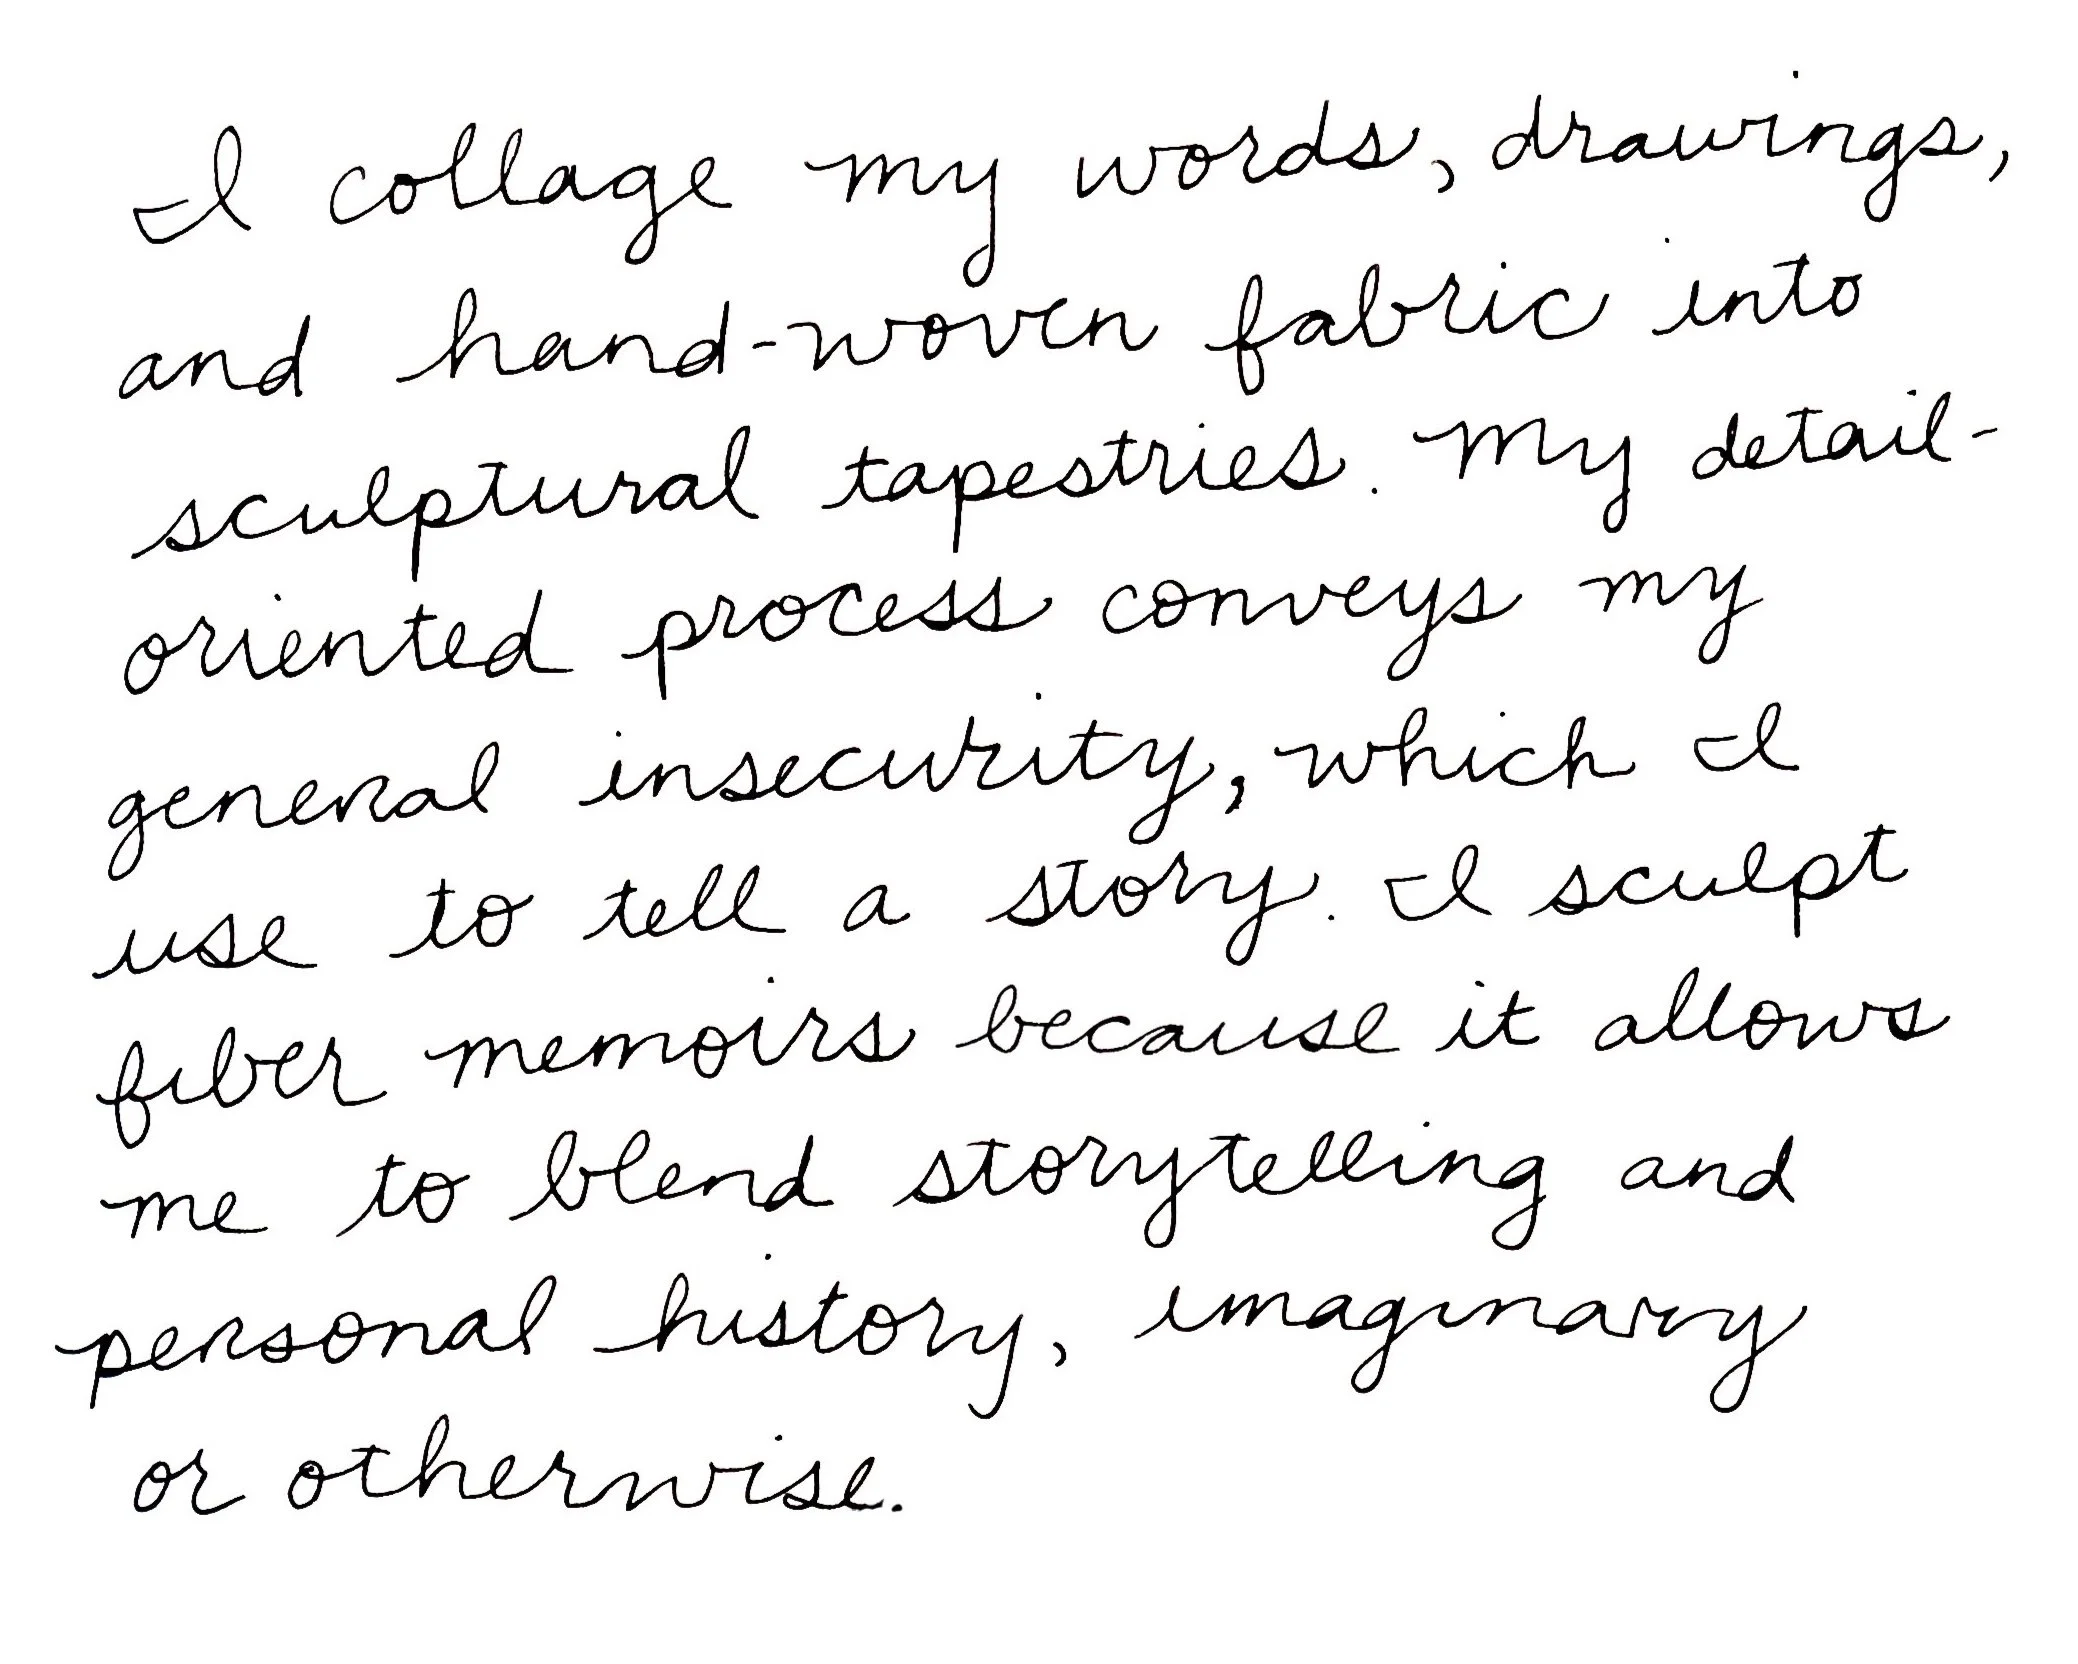 I collage my words, drawings,
and hand-woven fabric into
sculptural tapestries. My detail-
oriented process conveys my
general insecurity, which I
use to tell a story. I sculpt
fiber memoirs because it allows
me to blend storytelling and
personal history, imaginary
or otherwise.